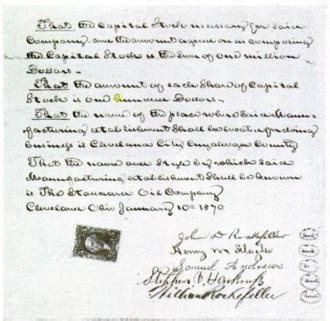 That the Capital Stock necessary for said
Company and the amount agreed on as composing
the Capital Stock is the sum of one million
Dollars.
That the amount of each Share of Capital
Stock is one hundred Dollars.
That the name of the place where said Manu-
facturing establishment shall be located for doing
business is Cleveland City Cuyahoga County
That the name and style by which said
Manufacturing establishment shall be known
is The Standard Oil Company
Cleveland Ohio January 10th 1870
John D. Rockefeller
Henry M. Flagler
Samuel Andrews
Stephen V. Harkness
William Rockefeller